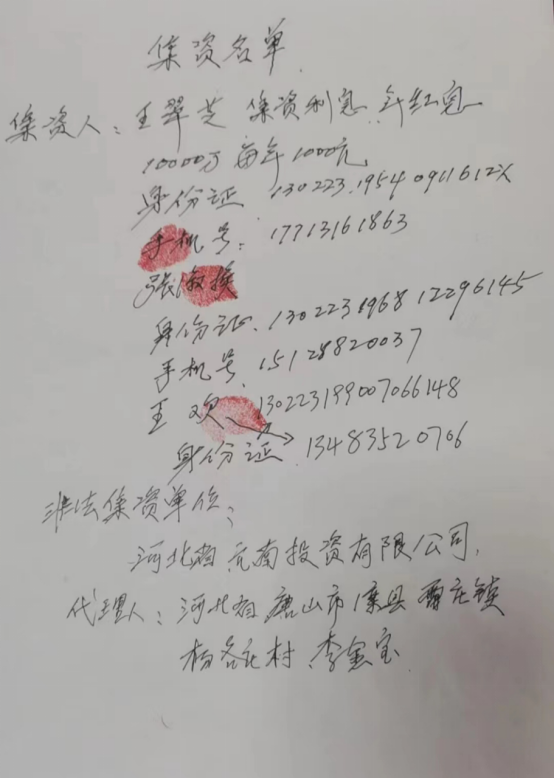 集资名单
集资人：王翠芝 集资利息 年红息
10000万 每年1000元
身份证 130223.1954 0911612X
手机号：17713161863
张淑换
身份证.130223196812296145
手机号.15128820037
王欢、130223199007066148
身份证 13483520706
非法集资单位；
河北省元南投资有限公司.
代理人：河北省唐山市滦县 镇
杨各庄村.李宝